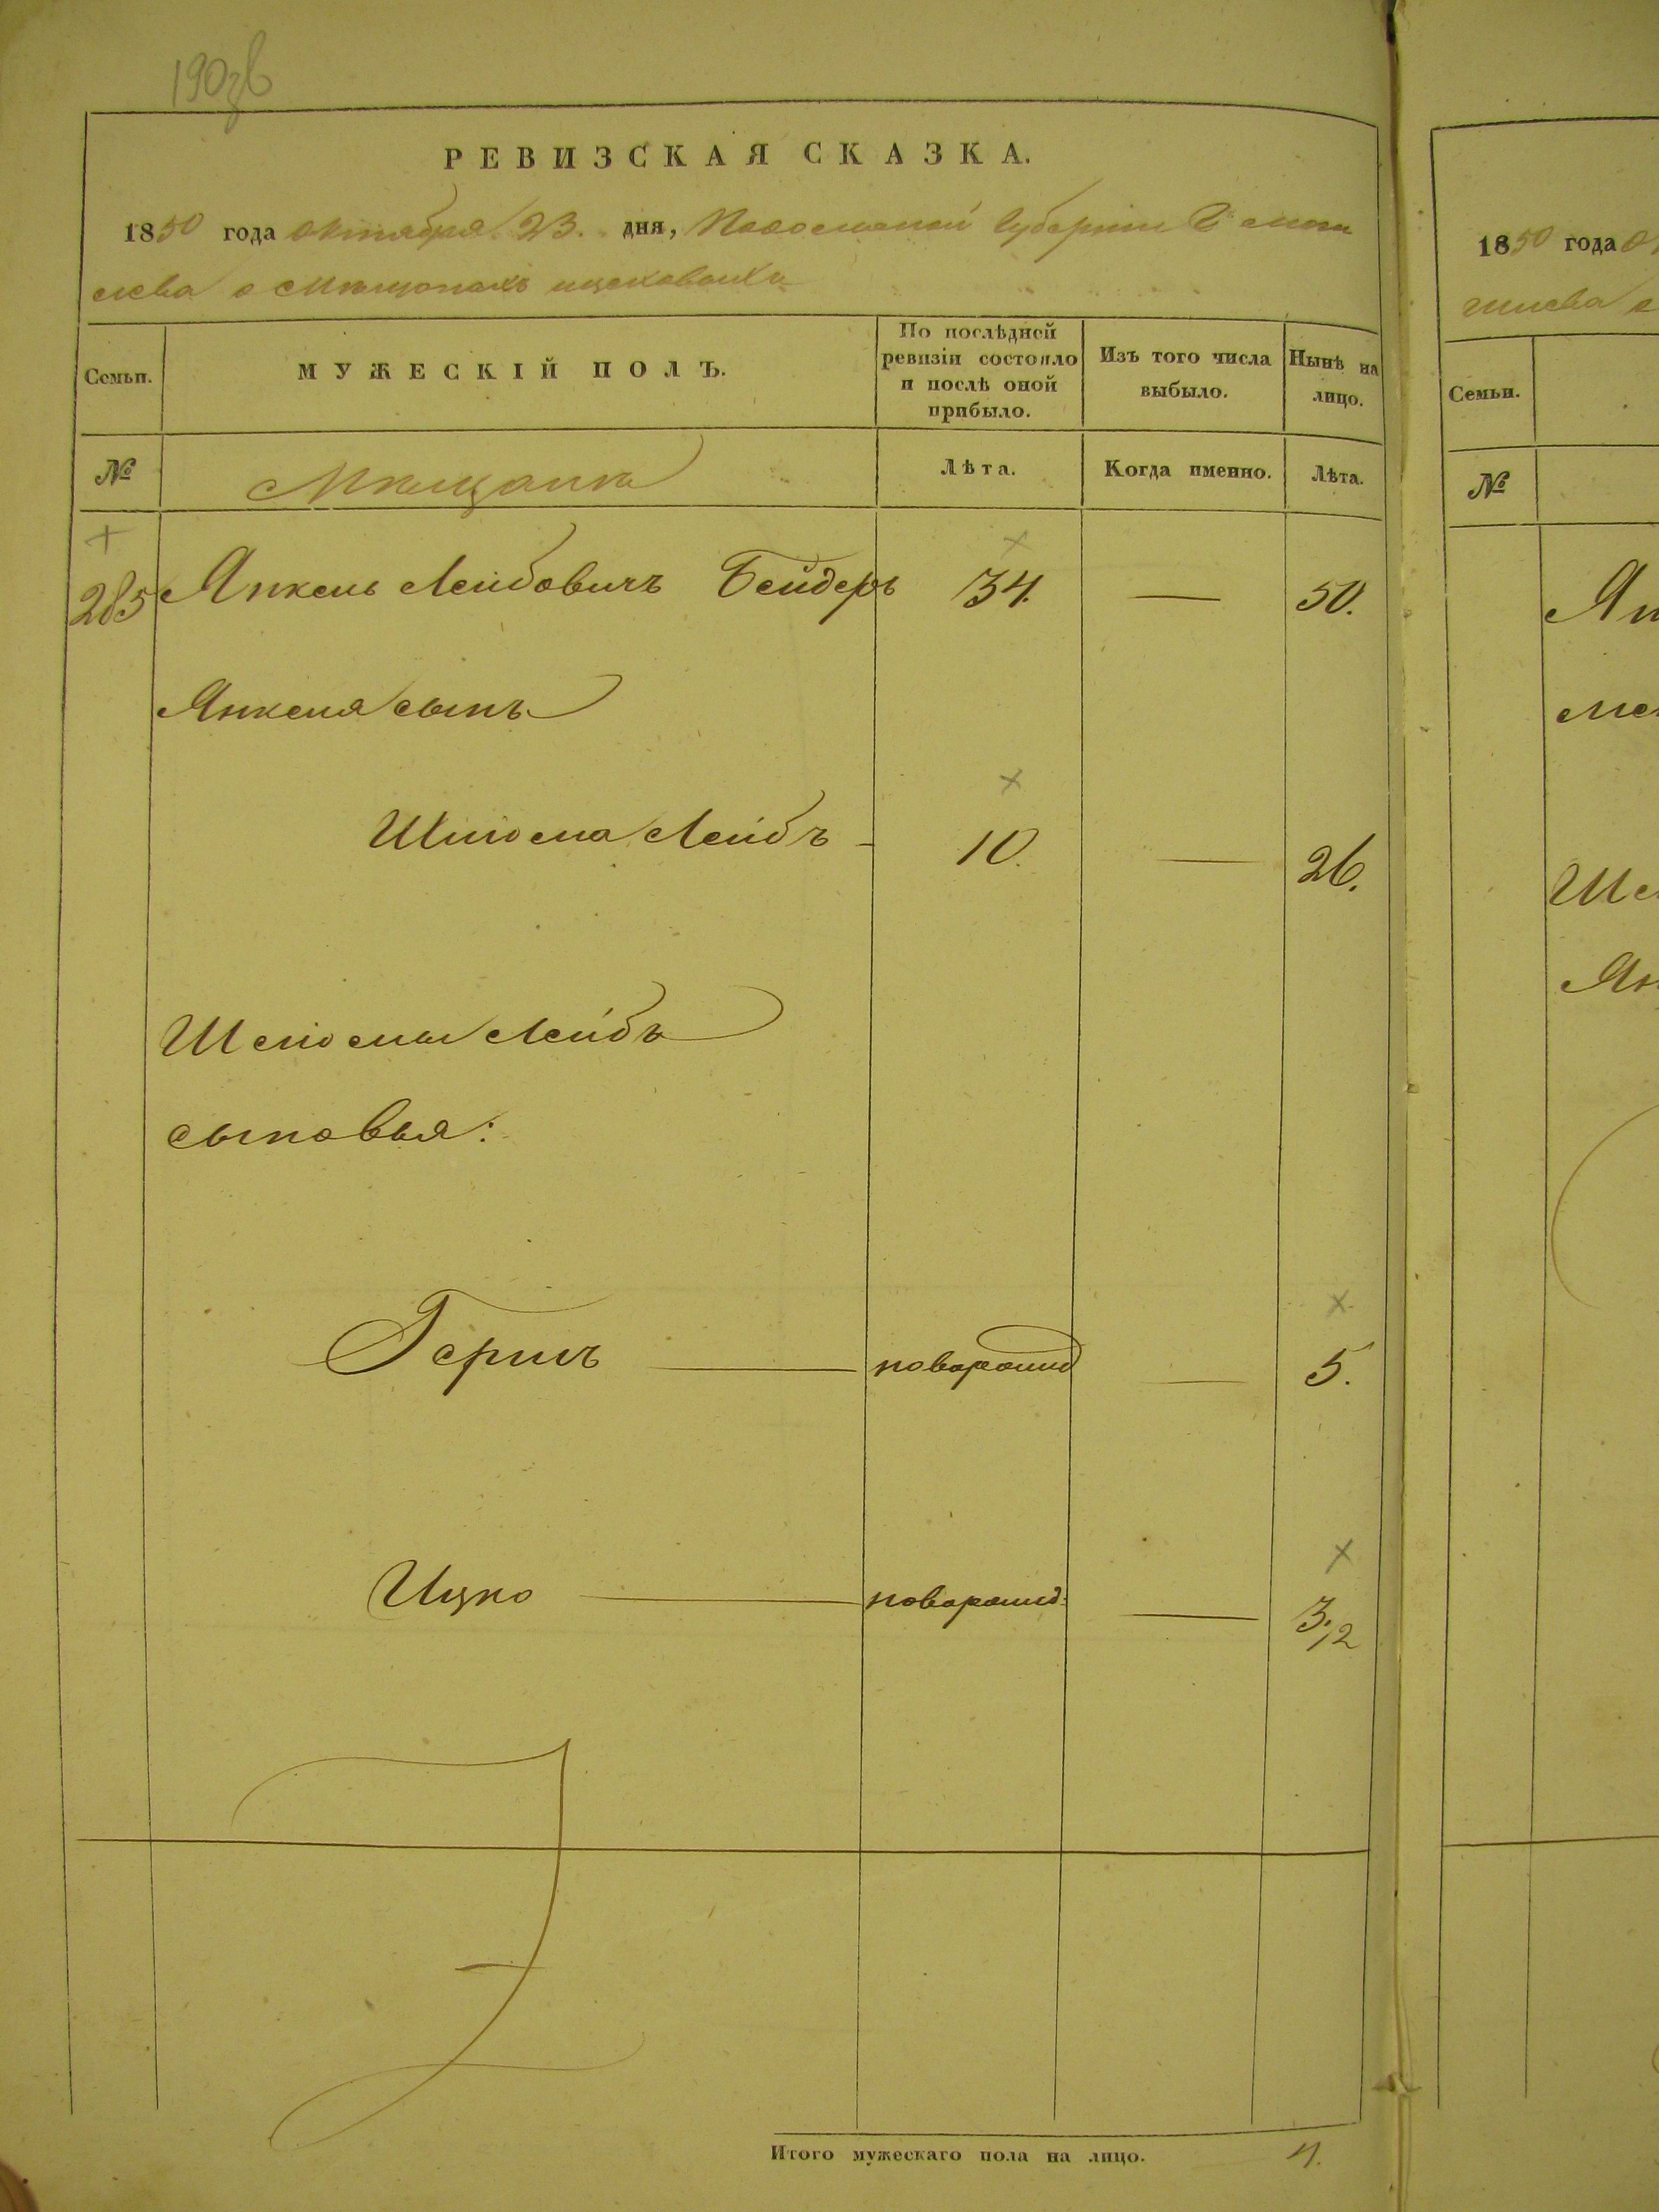 190зв
РЕВИЗСКАЯ СКАЗКА.
1850 года октября 23. дня, Подольской Губернии Г. Моги
лева о Мѣщанахъ
Семьи.
МУЖЕСКІЙ ПОЛЪ.
По послѣдней ревизіи состояло и послѣ оной прибыло.
Изъ того числа выбыло.
Нынѣ на лицо.
№
Мѣщане
Лѣта.
Когда именно.
Лѣта.
285 Янкель Лейбовичъ Бейдеръ 34. — 50.
Янкеля сынъ
Шліома Лейбъ - 10. — 26.
Шліомы Лейбъ
сыновья:
Гершъ — новорожд — 5.
Ицко — новорожд: — 3 1/2
Итого мужескаго пола на лицо. 4.
1850 года
Семьи.
№